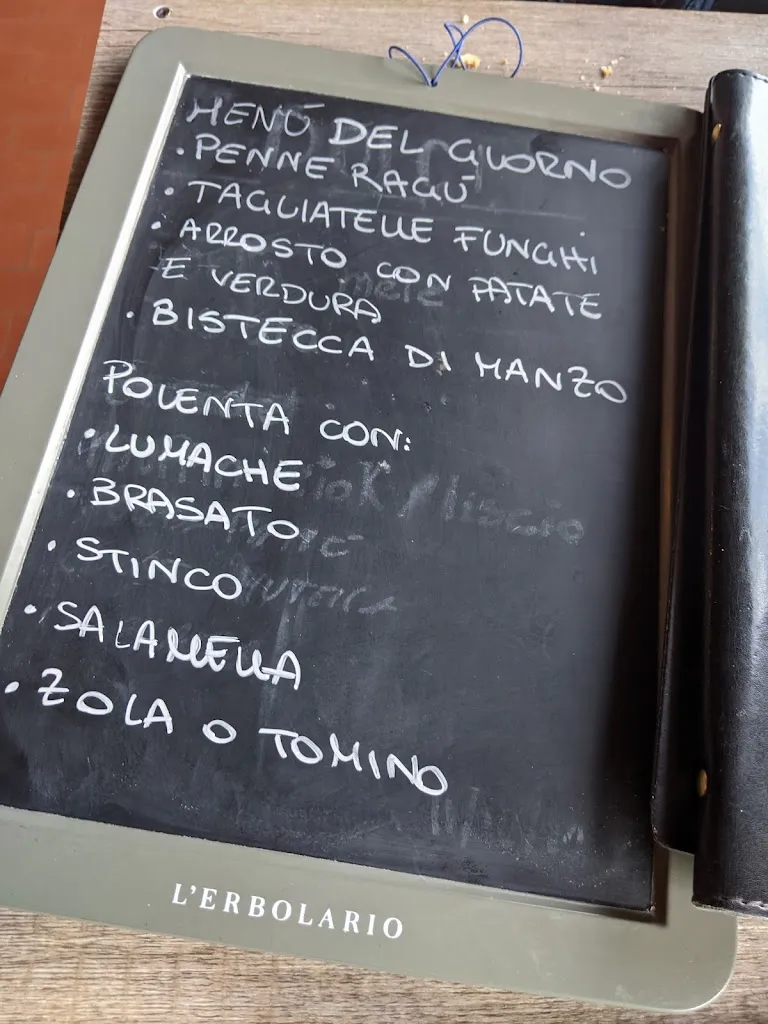 MENÙ DEL GIORNO
• PENNE RAGÙ
• TAGLIATELLE FUNGHI
• ARROSTO CON PATATE
E VERDURA
• BISTECCA DI MANZO
POLENTA CON:
• LUMACHE
• BRASATO
• STINCO
• SALAMELLA
• ZOLA O TOMINO
L'ERBOLARIO